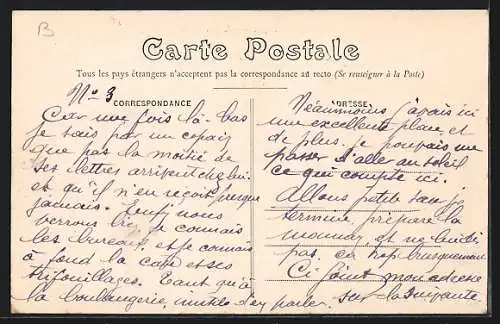 B
Carte Postale
Tous les pays étrangers n'acceptent pas la correspondance au recto (Se renseigner à la Poste)
N° 3
CORRESPONDANCE
Car une fois là-bas
je sais par un copain
que pas la moitié de
ses lettres arrivent chez lui
et qu'il n'en reçoit presque
jamais. Enfin nous
verrons bien je connais
les bureaux et je connais
à fond la case et ses
trifouillages. Quant à
la boulangerie, inutile d'en parler.
ADRESSE
Néanmoins j'avais ici
une excellente place et
de plus je pouvais me
passer d'aller au soleil
ce qui compte ici.
Allons petite sœur je
termine prépare la
maman et ne lui dis
pas, ça trop brusquement
Ci joint mon adresse
sur la suivante.